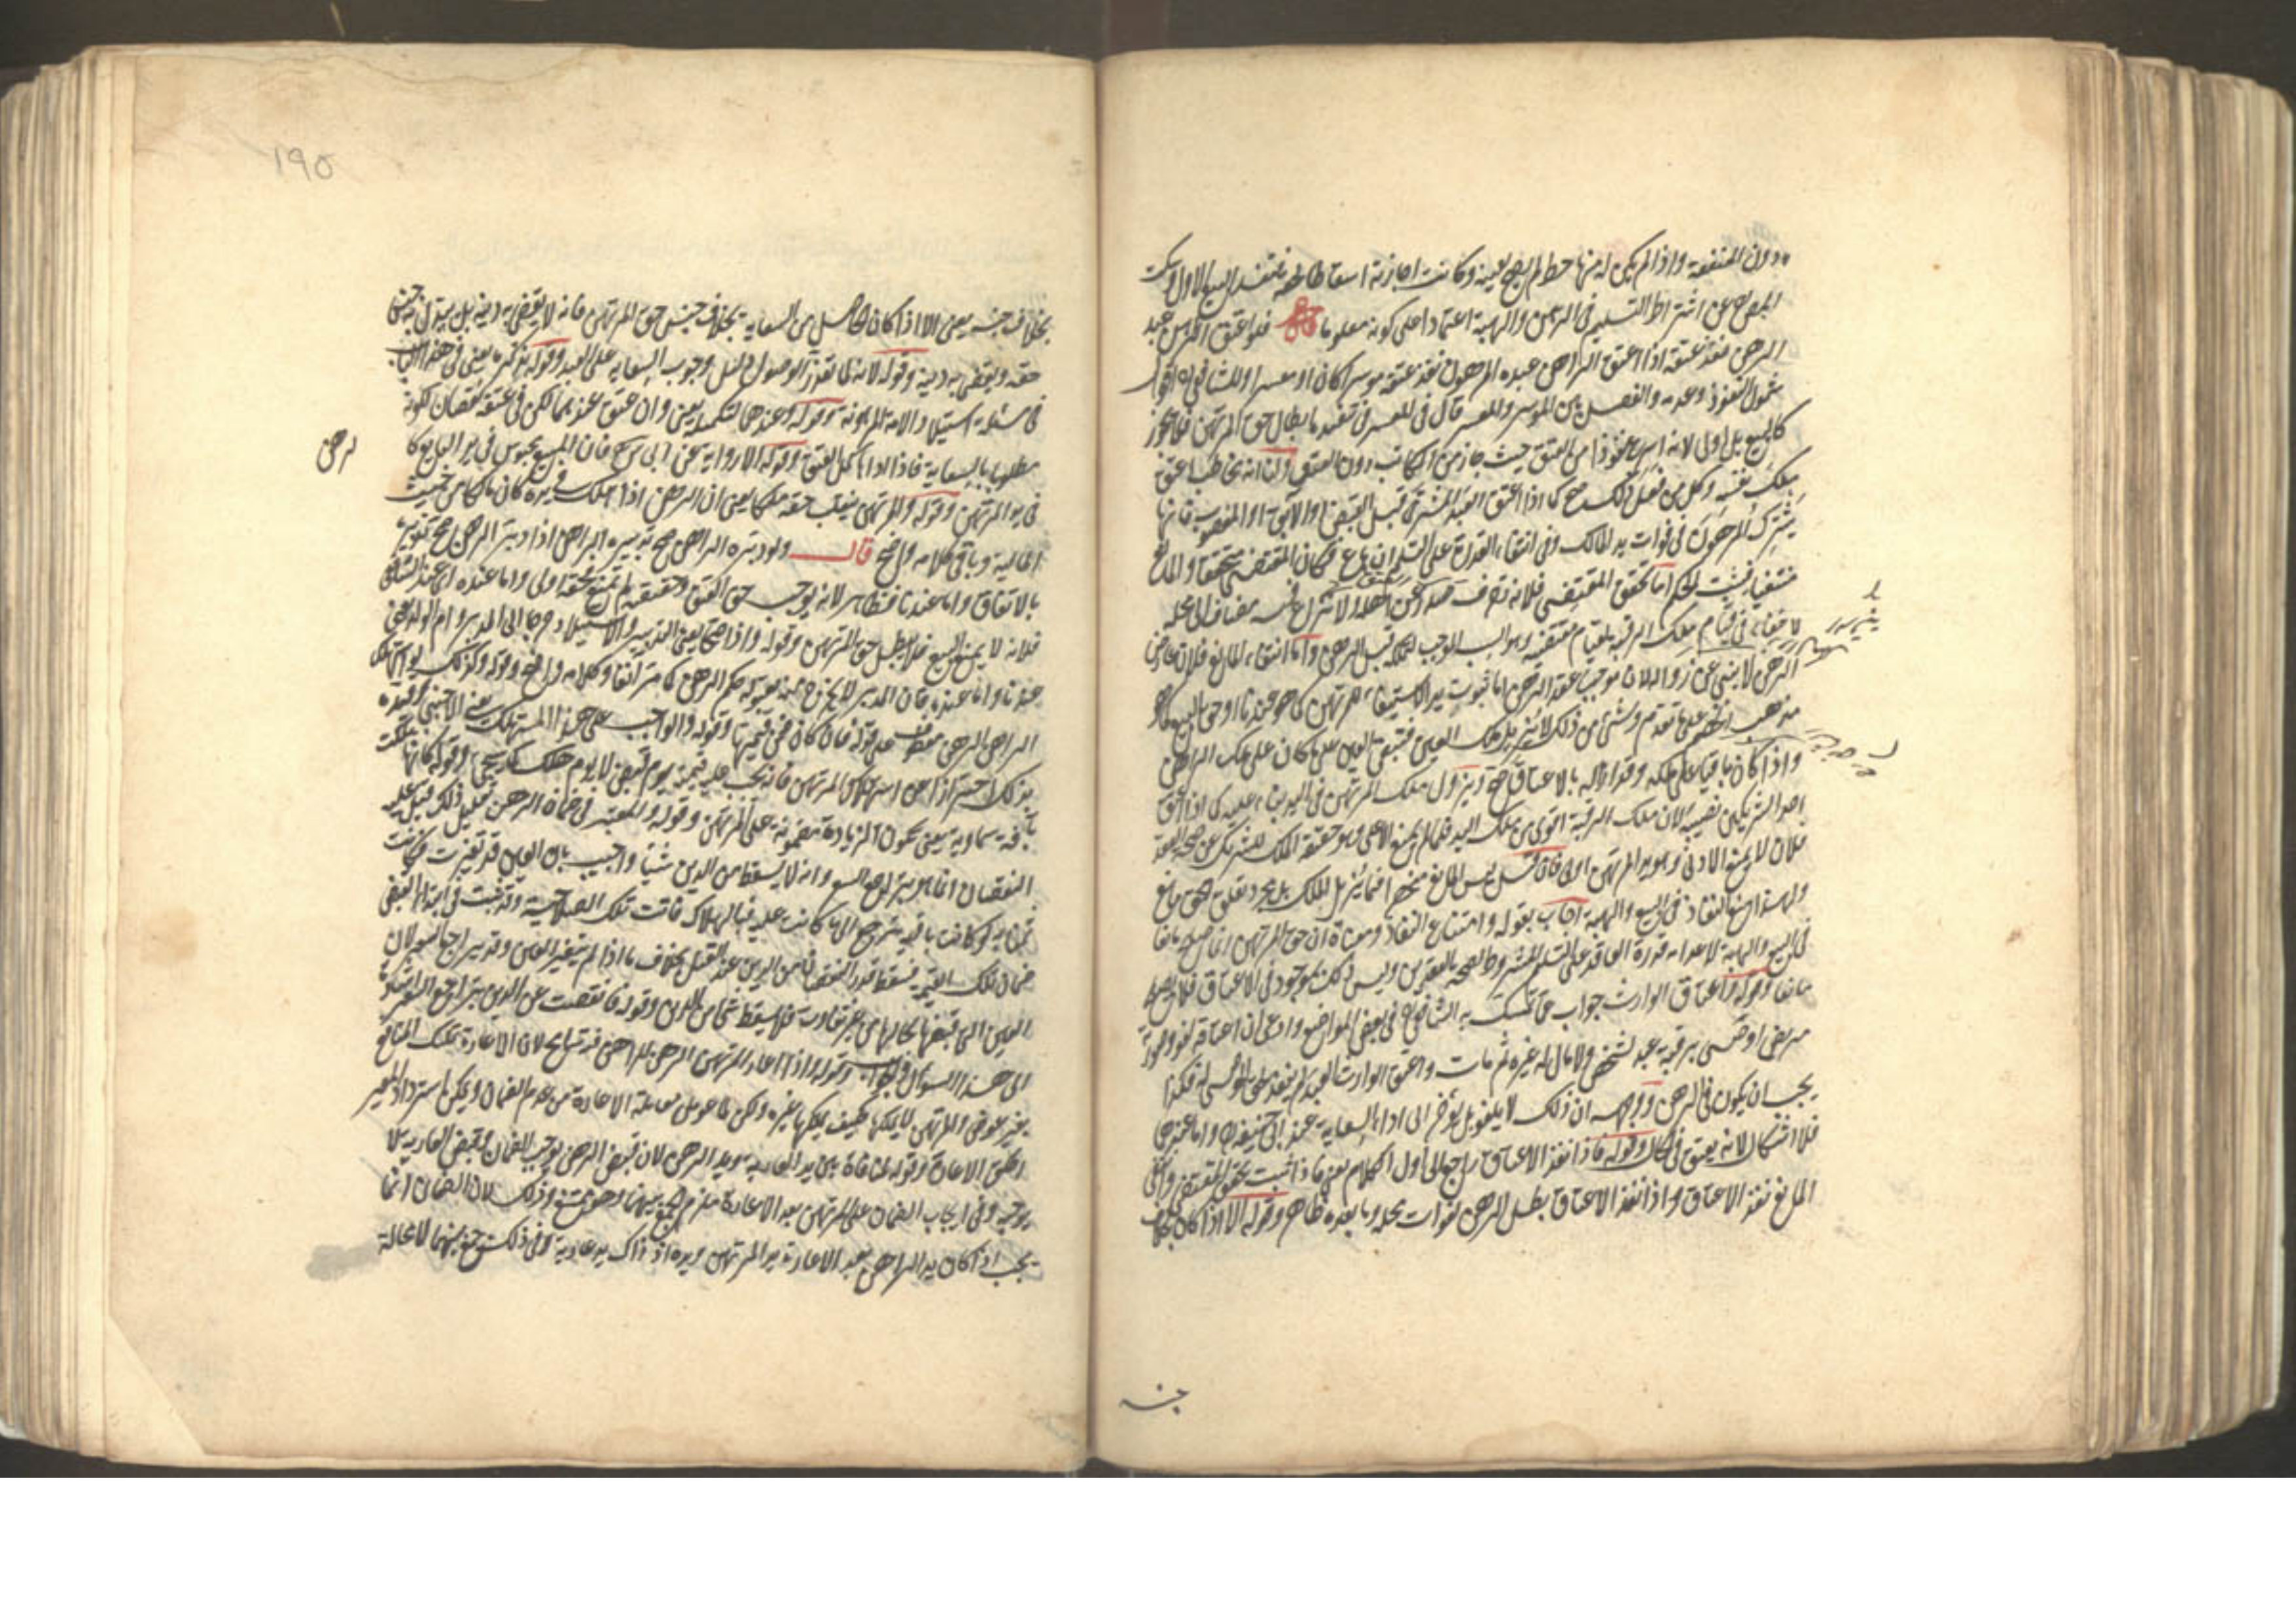 دون المنفعة واذا لم يكن له منها حظ لم يصح بيعه وكانت اجازته اسقاطا لحقه فتنفذ البيع الاول وسكت
المص عن اشتراط التسليم في الرهن والهبة اعتمادا على كونه معلوما قال فلو اعتق الراهن عبد
الرهن نفذ عتقه اذا اعتق الراهن عبده المرهون نفذ عتقه موسرا كان او معسرا وللشافعي اقوال
شمول النفوذ وعدمه والفصل بين الموسر والمعسر قال في المعسر في تنفيذه ابطال حق المرتهن فلا يجوز
كالبيع بل اولى لانه اسرع نفوذا من العتق حيث جاز من المكاتب دون العتق ولنا انه مخاطب اعتق
ملك نفسه وكل من فعل ذلك صح كما اذا اعتق العبد المشترى قبل القبض او الآبق او المغصوب فانها
يشترك المرهون في فوات يد المالك وفي انتفاء القدرة على التسليم ان باع فكان المقتضى متحققا والمانع
منتفيا فيثبت الحكم اما تحقق المقتضى فلانه تصرف صدر من اهله ولا نزاع فيه مضاف الى محله
لا خفاء في قيام ملك الرقبة لقيام مقتضيه وهو السبب الموجب لملكه قبل الرهن واما انتفاء المانع فلان عارض
الرهن لا ينبئ عن زواله لان موجب عقد الرهن اما ثبوت يد الاستيفاء للمرتهن كما هو عندنا او حق البيع كما هو
مذهب الخصم على ما تقدم وشيء من ذلك لا يزيل ملك العين فبقي العين على ما كان على ملك الراهن
واذا كان باقيا على ملكه وقد ازاله بالاعتاق صح ويزول ملك المرتهن في اليد بناء عليه كما اذا اعتق
احد الشريكين نصيبه لان ملك الرقبة اقوى من ملك اليد فلما لم يمنع الاعلى وهو حقيقة الملك للشريك عن صحة العتق
فلان لا يمنع الادنى وهو يد المرتهن اولى فان قيل ليس المانع منحصرا فيما يزيل الملك بل مجرد تعلق حق مانع
ولهذا منع النفاذ في البيع والهبة اجاب بقوله وامتناع النفاذ ومعناه ان حق المرتهن انما صلح مانعا
في البيع والهبة لانعدام قدرة العاقد على التسليم المشروط لصحة العقدين وليس ذلك بموجود في الاعتاق فلا يصلح
مانعا وقوله واعتاق الوارث جواب عما تمسك به الشافعي في بعض المواضع وادعى ان اعتاقه لغو وصورته
مريض اوصى برقبة عبد لشخص ولا مال له غيره ثم مات واعتق الوارث العبد لم ينفذ حتى الموصى له فكذا
يجب ان يكون في الرهن ووجهه ان ذلك لا يلغو بل يؤخر الى اداء السعاية عند ابي حنيفة واما عندهما
فلا اشكال لانه يعتق في الحال وقوله فاذا نفذ الاعتاق راجع الى اول الكلام يعني فاذا ثبت تحقق المقتضى وانتفى
المانع نفذ الاعتاق واذا نفذ الاعتاق بطل الرهن لفوات محله وما بعده ظاهر وقوله الا اذا كان بخلاف
جنسه
١٩٥
بخلاف جنسه يعني الا اذا كان الحاصل من السعاية بخلاف جنس حق المرتهن فانه لا يقضي به دينه بل يبدل بجنس
حقه ويقضي به دينه وقوله لانه لما تعذر الوصول دليل وجوب السعاية على العبد وقوله نذكره يعني في هذا الباب
في مسئلة استيلاد الامة المرهونة وقوله وعندهما لتكميله يعني وان عتق عندهما لكن في عتقه نقصان لكونه
مطلوبا بالسعاية فاذا اداها كمل العتق وقوله الا رواية عن ابي يوسف فان المبيع محبوس في يد البايع كا
لرهن
في يد المرتهن وقوله والمرتهن ينقلب حقه ملكا يعني ان الرهن اذا هلك في يده كان مالكا من حيث
المالية وباقي كلامه واضح قال ولو دبره الراهن صح تدبيره الراهن اذا دبر الرهن صح تدبيره
بالاتفاق واما عندنا فظاهر لانه يوجب حق العتق وحقيقته لم تمنع فحقه اولى واما عنده اي عند الشافعي
فلانه لا يمنع البيع فلا يبطل حق المرتهن وقوله واذا صحا يعني التدبير والاستيلاد خرجا الى المدبر وام الولد يعني
عندنا واما عنده فان المدبر لا يخرج عنه بتدبيره حكم الرهن كما مر آنفا وكلامه واضح وقوله وكذلك لو استهلك
الراهن الرهن معطوف على قوله فان كان فمن قيمتها وقوله والواجب على هذا المستهلك يعني الاجنبي وقيده
بذلك احترازا عن استهلاك المرتهن فانه يجب عليه قيمته يوم قبض لا يوم هلك كما يجئ وقوله كانها هلكت
بآفة سماوية يعني تكون الزيادة مضمونة على المرتهن وقوله والمعتبر في ضمان الرهن تعليل ذلك قيل عليه
النقصان انما هو بتراجع السعر وانه لا يسقط من الدين شيئا واجيب بان العين قد تغيرت فكانت
ثمن لو كانت باقية يترجح الى ما كانت عليه فبالهلاك فاتت تلك الصلاحية وقد ثبت في ابتداء القبض
ضمان تلك القيمة فيسقط قدر النقصان من الدين عند القتل بخلاف ما اذا لم يتغير العين وقد تراجع السعر لان
العين التي قبضها بحالها من غير تفاوت فلا يسقط شئ من الدين وقوله فما نقصت عن الدين بتراجع السعر اشارة
الى هذا السؤال والجواب وقوله واذا اعار المرتهن الرهن للراهن فيه تسامح لان الاعارة تمليك المنافع
بغير عوض والمرتهن لا يملكها فكيف يملكها غيره ولكن لما عومل معاملة الاعارة من عدم الضمان وتمكن استرداد المعير
اطلق الاعارة وقوله لمنافاة بين يد العارية ويد الرهن لان قبض الرهن يوجب الضمان وقبض العارية لا
يوجبه وفي ايجاب الضمان على المرتهن بعد الاعارة يلزم الجمع بينهما وهو ممتنع وذلك لان الضمان انما
يجب اذا كان يد الراهن بعد الاعارة يد المرتهن ويده اذ ذاك يد عارية وفي ذلك جمع بينهما لا محالة